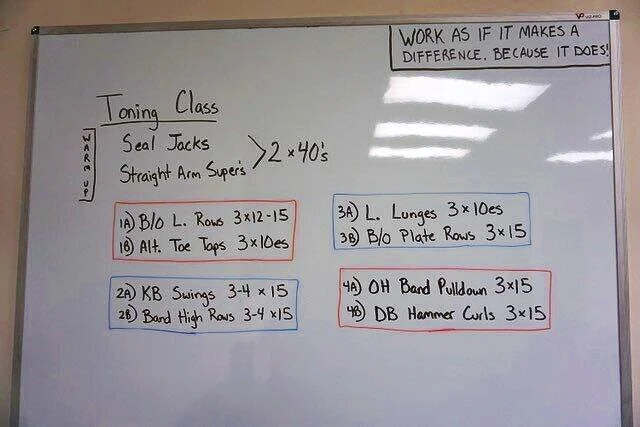 WORK AS IF IT MAKES A
DIFFERENCE. BECAUSE IT DOES!
Toning Class
WARM UP
Seal Jacks
Straight Arm Super's
> 2 x 40's
1A) B/O L. Rows 3x12-15
1B) Alt. Toe Taps 3x10es
2A) KB Swings 3-4 x 15
2B) Band High Rows 3-4 x15
3A) L. Lunges 3x10es
3B) B/O Plate Rows 3x15
4A) OH Band Pulldown 3x15
4B) DB Hammer Curls 3x15